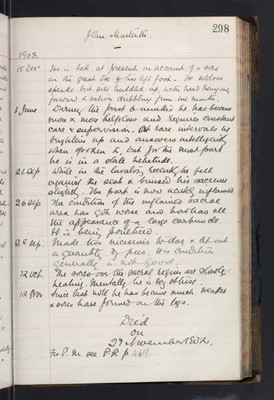 298
John Marlith
1903
15 Dec Is in bed at present on account of a sore
on the great toe of his left foot. He seldom
speaks but sits huddled up, with head hanging
forward & saliva dribbling from his mouth.
1. June During the past 6 months he has become
more & more helpless and requires constant
care & supervision. At rare intervals he
brightens up and answers intelligently
when spoken to, but for the most part
he is in a state of hebetude.
21 Sep While in the lavatory recently he fell
against the seat & bruised his sacrum
slightly. The part is now acutely inflamed.
26 Sep The condition of the inflamed sacral
area has got worse and now has all
the appearance of a large carbuncle.
It is being poulticed.
28 Sep. Made two incisions to-day & let out
a quantity of pus. His condition
generally is not good.
12 Oct. The sores on the sacral region are slowly
healing. Mentally he is
12 Nov Since last note he has become much weaker
& sores have formed on the legs.
Died
on
27 November 1904.
For P.M. see P.R. p